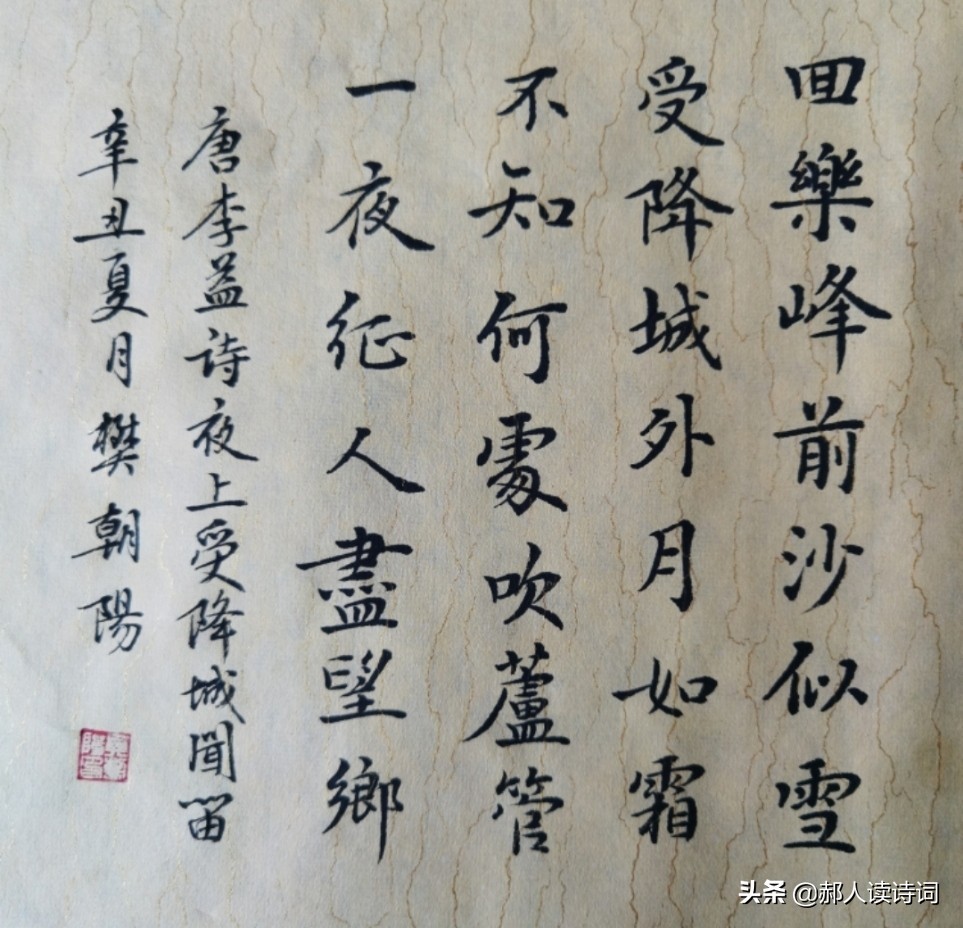 回樂峰前沙似雪
受降城外月如霜
不知何處吹蘆管
一夜征人盡望鄉
唐李益诗夜上受降城聞笛
辛丑夏月樊朝陽
头条 @郝人读诗词